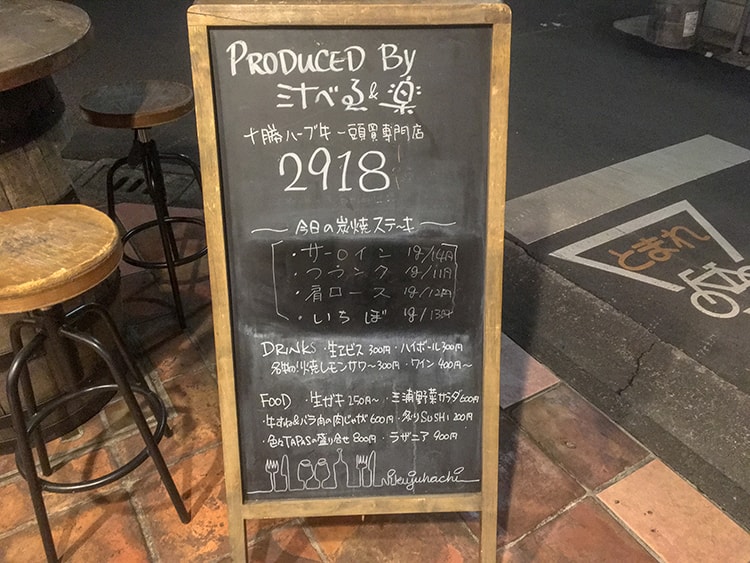 PRODUCED By
ミナベる & 楽
十勝ハーブ牛一頭買専門店
2918
今日の炭焼ステーキ
・サーロイン 1g/14円
・フランク 1g/11円
・肩ロース 1g/12円
・いちぼ 1g/13円
DRINKS ・生ヱビス 300円 ・ハイボール 300円
名物!!火焼しレモンサワー 300円 ・ワイン 400円〜
FOOD ・生ガキ 250円〜 ・三浦野菜サラダ 600円
・牛すね&バラ肉の肉じゃが 600円 ・炙りSUSHI 200円
・色々TAPASの盛り合せ 800円 ・ラザニア 900円
Nikujuhachi
とまれ